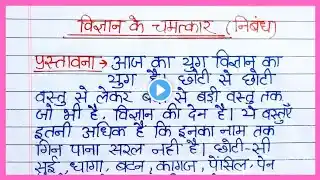 विज्ञान के चमत्कार (निबंध)
प्रस्तावना → आज का युग विज्ञान का
युग है। छोटी से छोटी
वस्तु से लेकर से बड़ी वस्तु तक
जो भी है, विज्ञान की देन है। ये वस्तुएँ
इतनी अधिक है कि इनका नाम तक
गिन पाना सरल नहीं है। छोटी-सी
सुई, धागा, बटन, कागज, पेंसिल, पेन